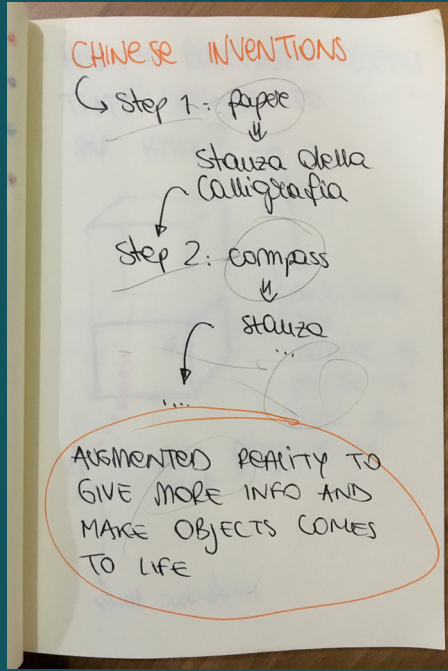 CHINESE INVENTIONS
Step 1: paper
stanza della
Calligrafia
Step 2: compass
stanza
...
...
AUGMENTED REALITY TO
GIVE MORE INFO AND
MAKE OBJECTS COMES
TO LIFE